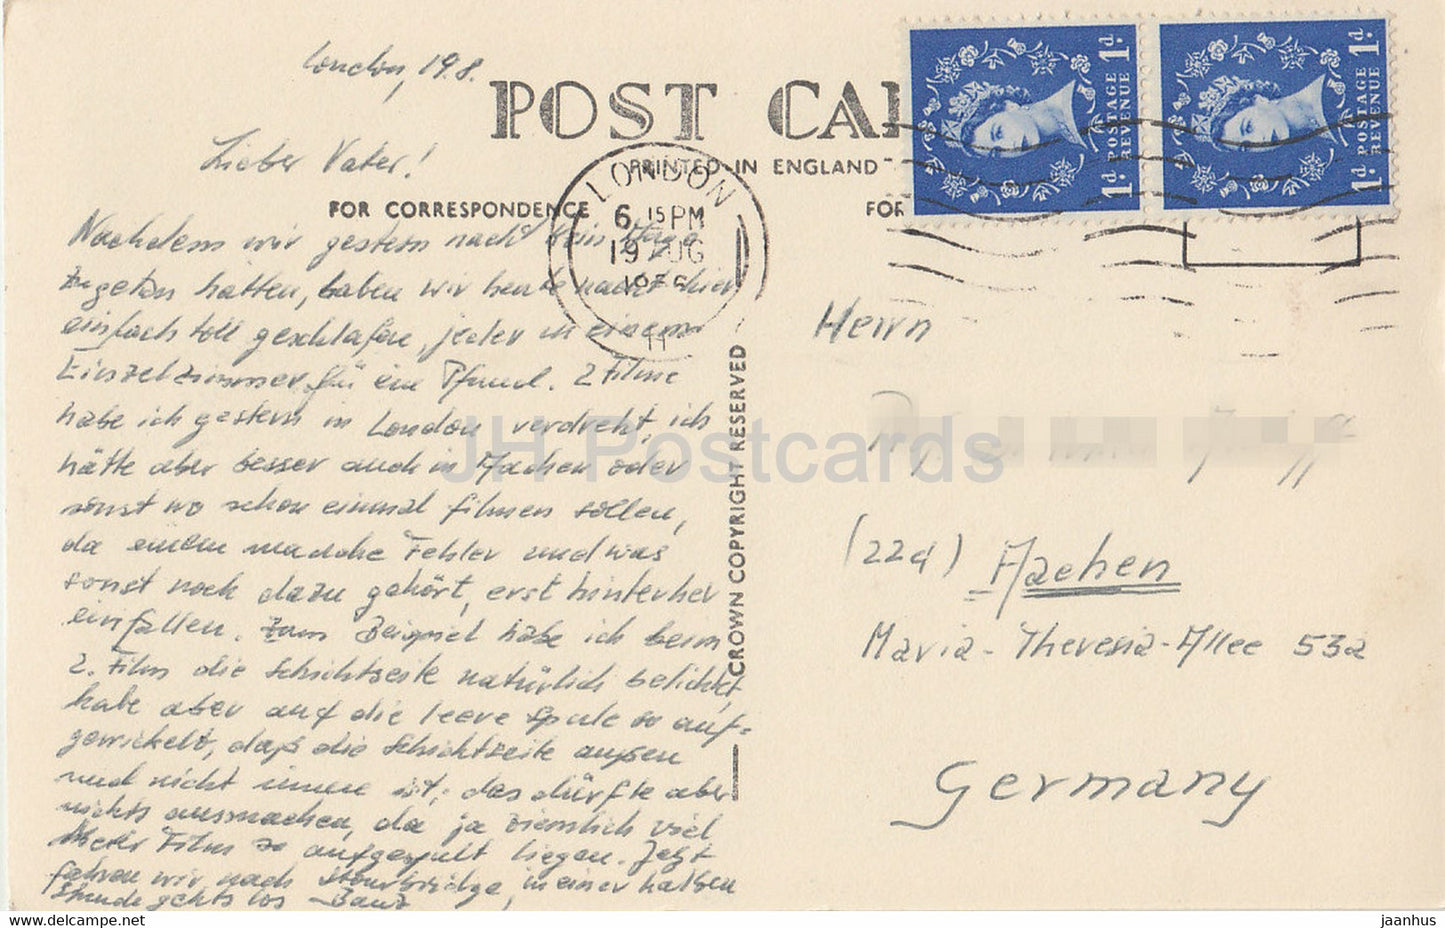 London, 19.8.
POST CAR
PRINTED IN ENGLAND
FOR CORRESPONDENCE
FOR
LONDON
6 15 PM
19 AUG
1956
11
1d. POSTAGE REVENUE 1d.
1d. POSTAGE REVENUE 1d.
Lieber Vater!
Nachdem wir gestern nacht kein Auge
zugetan hatten, haben wir heute nacht hier
einfach toll geschlafen, jeder in einem
Einzelzimmer für ein Pfund. 2 Filme
habe ich gestern in London verdreht, ich
hätte aber besser auch in Aachen oder
sonst wo schon einmal filmen sollen,
da einem manche Fehler und was
sonst noch dazu gehört, erst hinterher
einfallen. Zum Beispiel habe ich beim
2. Film die Schichtseite natürlich belichtet,
habe aber auf die leere Spule so auf-
gewickelt, daß die Schichtseite außen
und nicht innen ist; das dürfte aber
nichts ausmachen, da ja ziemlich viel
Meter Film so aufgespult liegen. Jetzt
fahren wir nach Stourbridge, in einer halben
Stunde gehts los
CROWN COPYRIGHT RESERVED
Herrn
(22a) Aachen
Maria-Theresia-Allee 53a
Germany
JH Postcards
www.delcampe.net
jaanhus